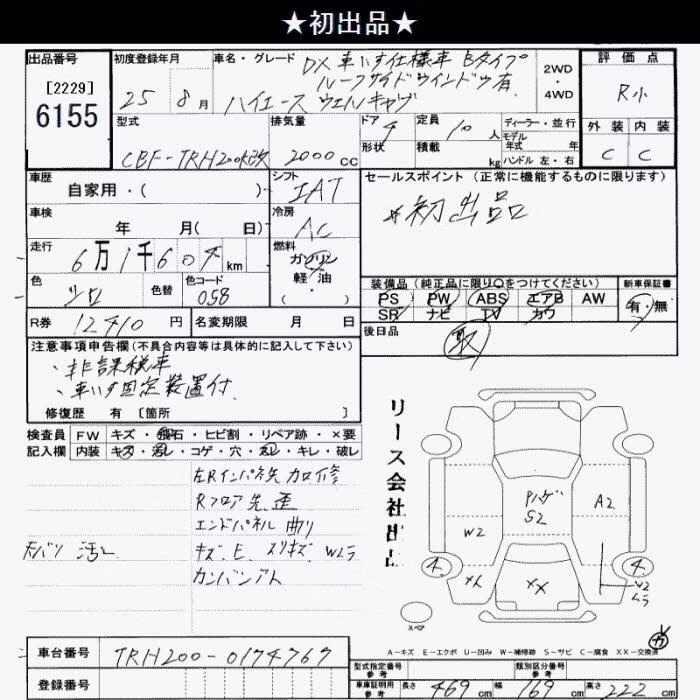 ★初出品★
出品番号
[2229]
6155
初度登録年月
25年 8月
車名・グレード
DX 車いす仕様車 Bタイプ
ルーフサイドウインドウ有
ハイエース ウェルキャブ
2WD
・
4WD
評価点
R小
外装 内装
C C
型式
CBF-TRH200K改
排気量
2000cc
ドア 4
形状
定員 10人
積載 kg
ディーラー・並行
モデル
年式 年
ハンドル 左・右
車歴
自家用・( )
シフト
IAT
セールスポイント (正常に機能するものに限ります)
*初出品
車検
年 月( 日)
冷房
AC
走行
6万1千604km
燃料
ガソリン
軽・油
( ・ )
色
シロ
色替
色コード
058
装備品 (純正品に限り○をつけてください)
PS PW ABS エアB AW
SR ナビ TV カワ
新車保証書
有・無
R券 12410円
名変期限 月 日
後日品
取
注意事項申告欄(不具合内容等は具体的に記入して下さい)
・非課税車
・車いす固定装置付
修復歴 有 [箇所 ]
検査員
記入欄
FW キズ・飛石・ヒビ割・リペア跡・×要
内装 キズ・汚レ・コゲ・穴・スレ・キレ・破レ
左Rインパネ先 加修
Rフロア先 歪
エンドパネル 曲り
キズ、E、スリキズ Wムラ
カンバンアト
天バリ 汚レ
リース会社出品
Pハゲ
S2
A2
W2
4
4
XX
W2
ムラ
スペア
A-キズ E-エクボ U-凹み W-補修跡 S-サビ C-腐食 XX-交換済
車台番号
TRH200-0174767
登録番号
型式指定番号
参考
類別区分番号
参考
車庫証明用
参考
長さ 469cm 幅 169cm 高さ 222cm